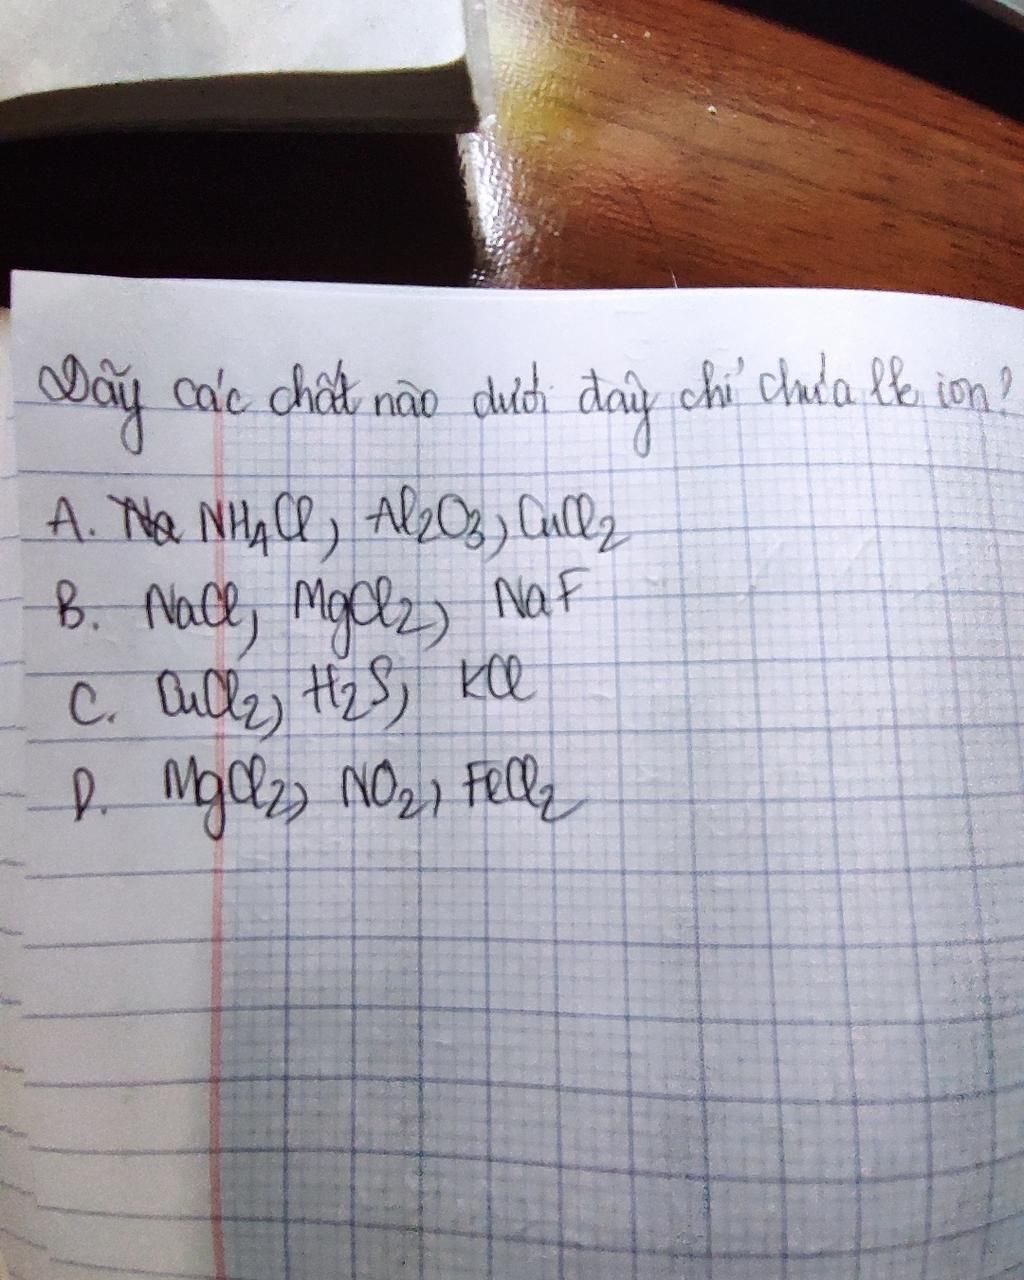 Dãy các chất nào dưới đây chỉ chứa lk ion?
A. NH4Cl, Al2O3, CuCl2
B. NaCl, MgCl2, NaF
C. CuCl2, H2S, KCl
D. MgCl2, NO2, FeCl2